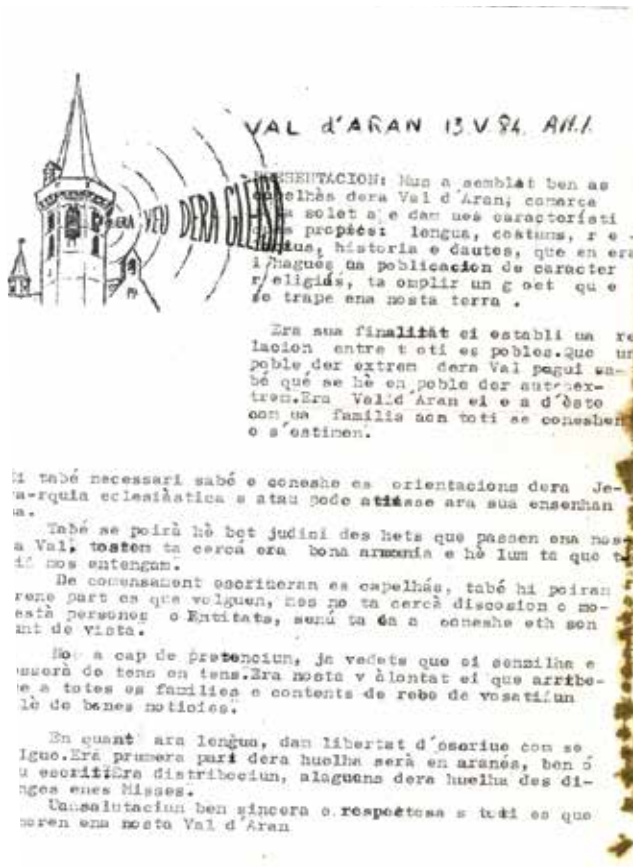 VAL d'ARAN 13.V.84. AN.1.
ERA VEU DERA GLÈISA
PRESENTACION: Mus a semblat ben as
capelhès dera Val d'Aran, comarca
solet a e dam ues característi
propiés: lengua, costums, r e -
historia e dautes, que en era
i hagués ua poblicacion de caracter
religiós, ta omplir un g oet qu e
se trape ena nosta terra .
Era sua finalitat ei establi ua re
lacion entre t oti es pobles.Que un
poble der extrem dera Val pogui sa-
bé qué se hè en poble der autr ex-
trem.Era Val d'Aran ei e a d'èste
com ua familia aon toti se coneshen
o s'estimen.
Ei tabé necessari sabé e coneshe es orientacions dera Je-
ra-rquia eclesiàstica e atau pode atiesse ara sua ensenhan
sa.
Tabé se poirà hè bet judici des hets que passen ena nos-
a Val, tostem ta cercá era bona armonia e hè lum ta que t
mos entengam.
De comensament escriueran es capelhás, tabé hi poiran
rene part es que volguen, mes no ta cercà discosion o mo-
està persones o Entitats, senú ta da a coneshe eth son
unt de vista.
No a cap de pretenciun, ja vedets que ei senzilha e
osserà de tens en tens.Era nosta v òlontat ei que arribe-
e a totes es families e contents de rebe de vosati un
lè de bones noticies.
En quant ara lengua, dan libertat d'escriue com se
lgue.Era prumera part dera huelha serà en aranés, ben ó
u escrit.Era distribociun, alaguens dera huelha des di-
nges enes Misses.
Uansalutaciun ben sincera e respectosa a toti es que
moren ena nosta Val d'Aran